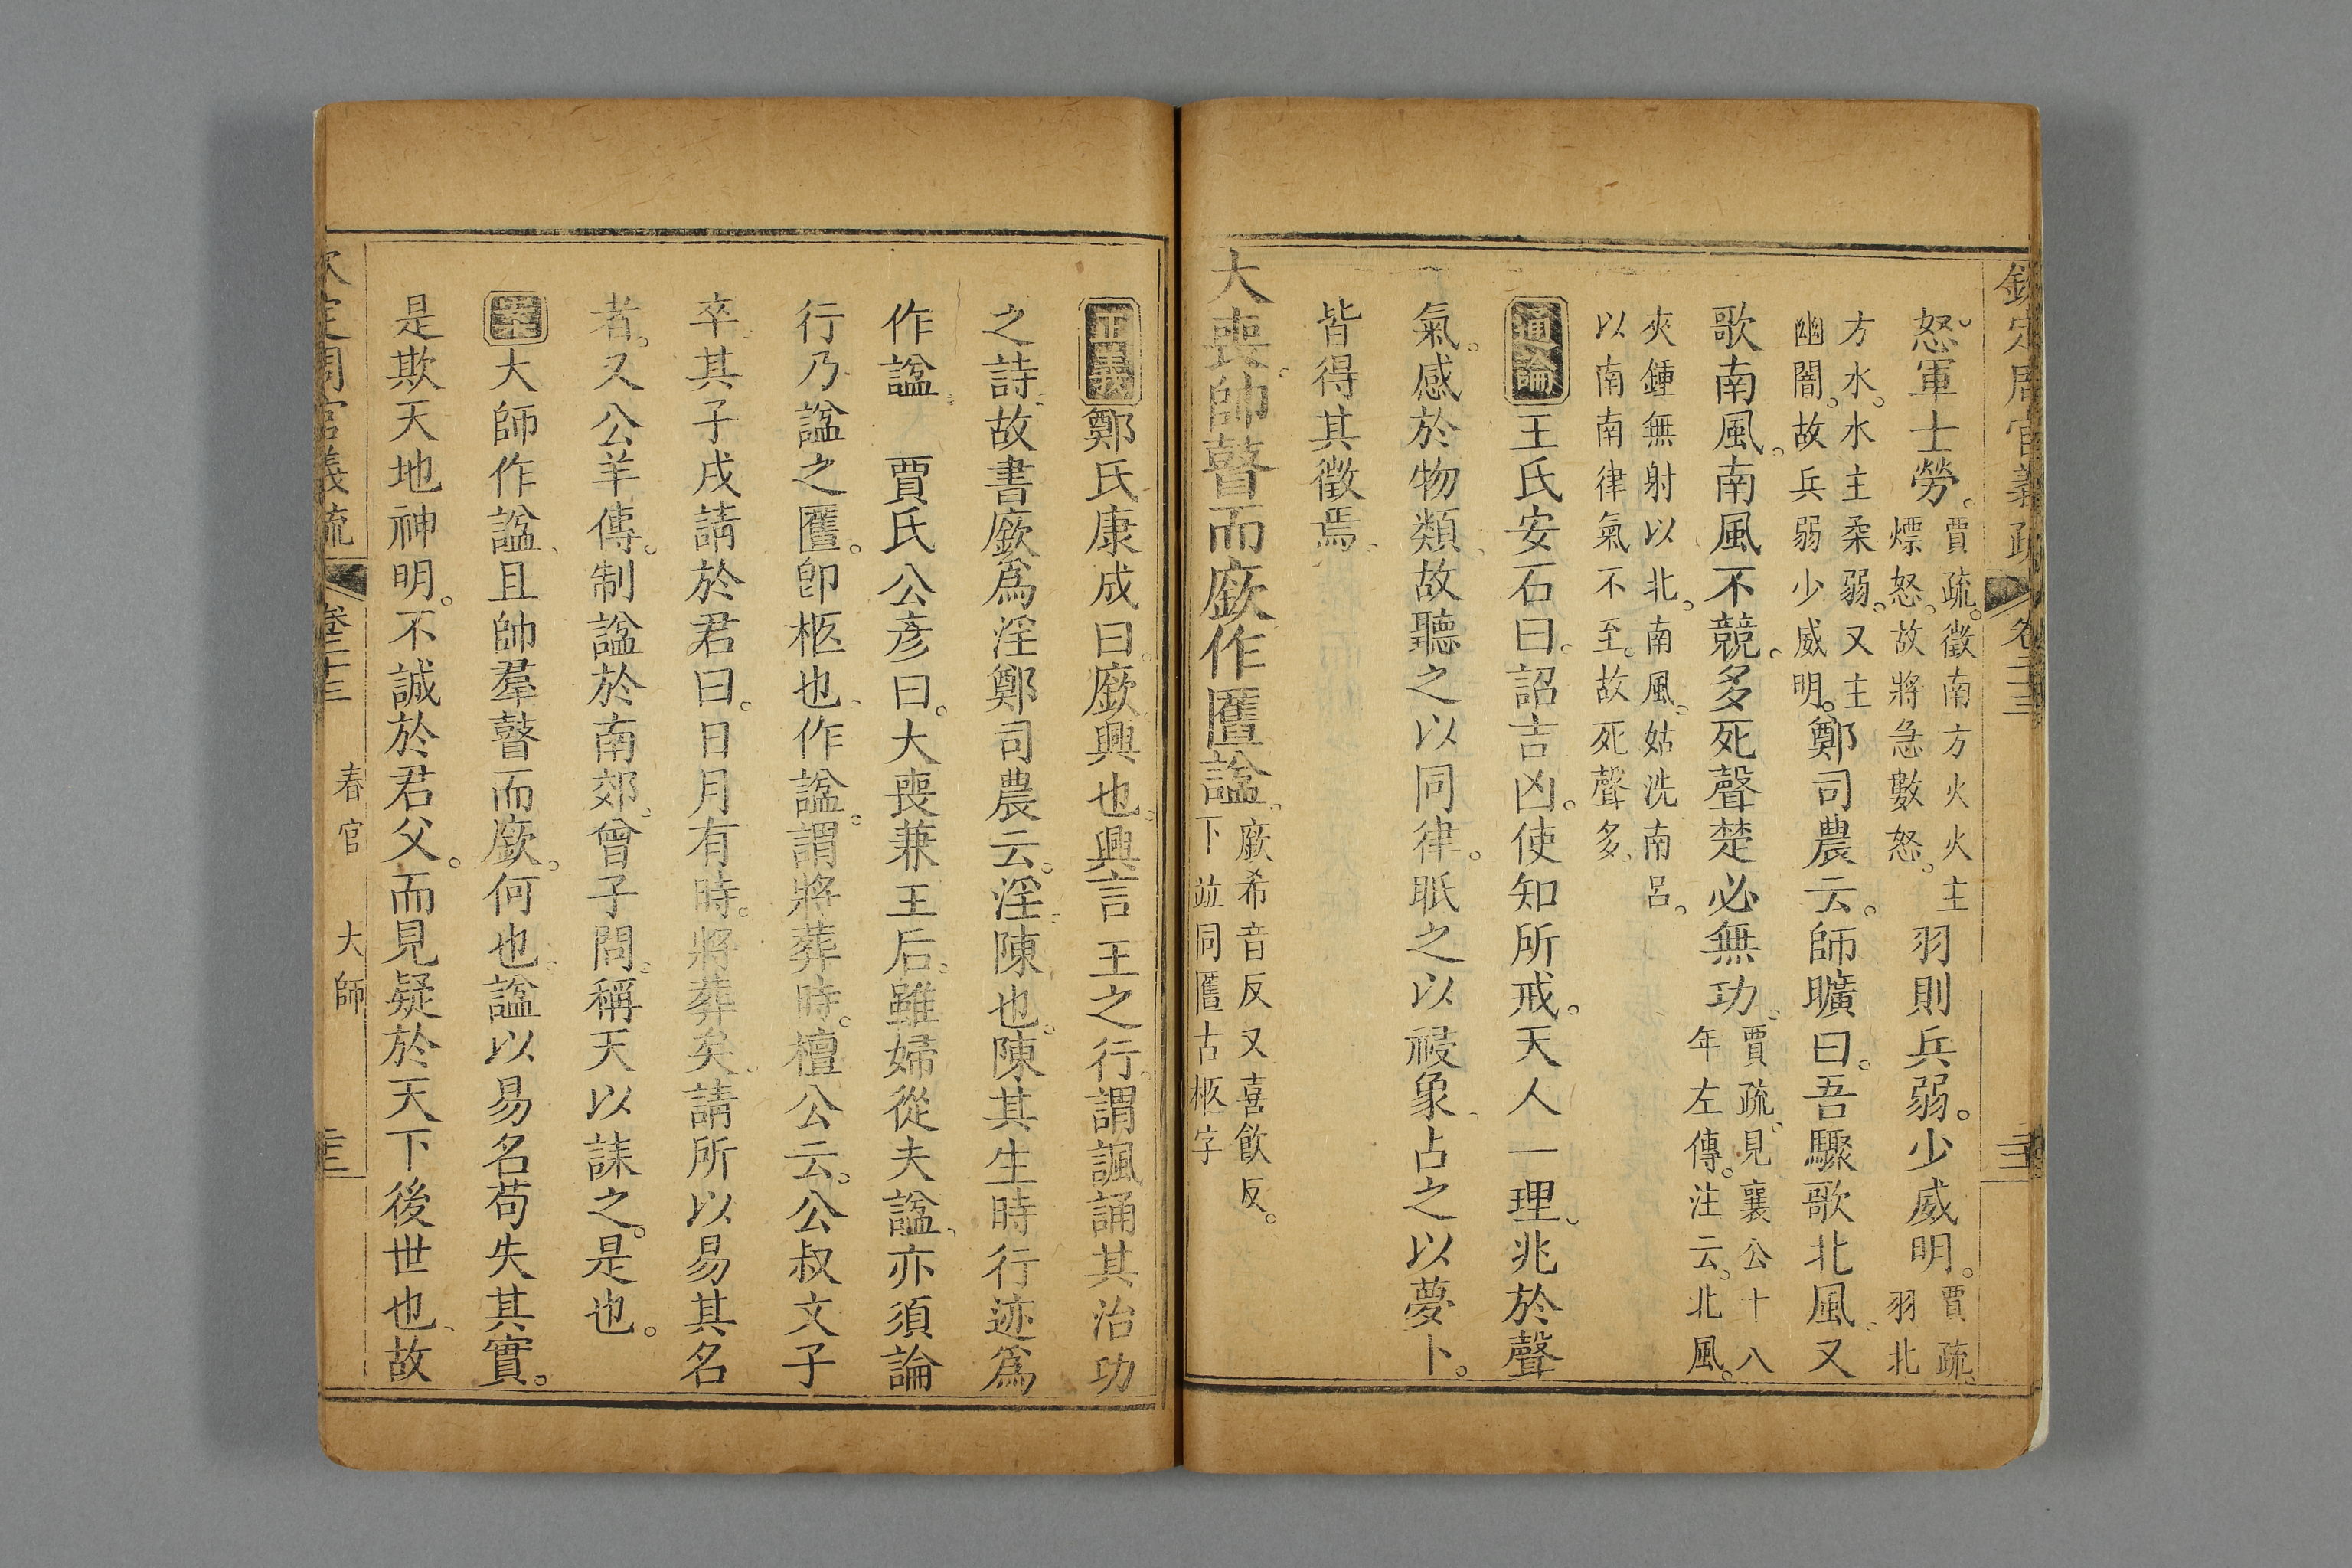 欽定周官義疏 卷二十三
怒軍士勞。賈疏。徵南方火火主熛怒。故將急數怒。羽則兵弱。少威明。賈疏。羽北
方水。水主柔弱。又主幽闇。故兵弱少威明。鄭司農云。師曠曰。吾驟歌北風。又
歌南風。南風不競。多死聲。楚必無功。賈疏。見襄公十八年左傳。注云。北風。
夾鍾無射以北。南風。姑洗南呂。以南南律氣不至。故死聲多。
通論王氏安石曰。詔吉凶。使知所戒。天人一理。兆於聲
氣。感於物類。故聽之以同律。眡之以祲象。占之以夢卜。
皆得其徵焉。
大喪。帥瞽而廞作匶諡。廞希音反又喜飲反。下竝同匶古柩字
正義鄭氏康成曰。廞興也。興言王之行。謂諷誦其治功
之詩。故書廞爲淫。鄭司農云。淫。陳也。陳其生時行迹爲
作諡 賈氏公彦曰。大喪兼王后。雖婦從夫諡。亦須論
行乃諡之匶。卽柩也。作諡。謂將葬時。檀公云。公叔文子
卒。其子戍請於君曰。日月有時。將葬矣。請所以易其名
者。又公羊傳。制諡於南郊。曾子問。稱天以誄之。是也。
案大師作諡。且帥羣瞽而廞。何也。諡以易名。苟失其實。
是欺天地神明。不誠於君父。而見疑於天下後世也。故
欽定周官義疏 卷二十三 春官 大師